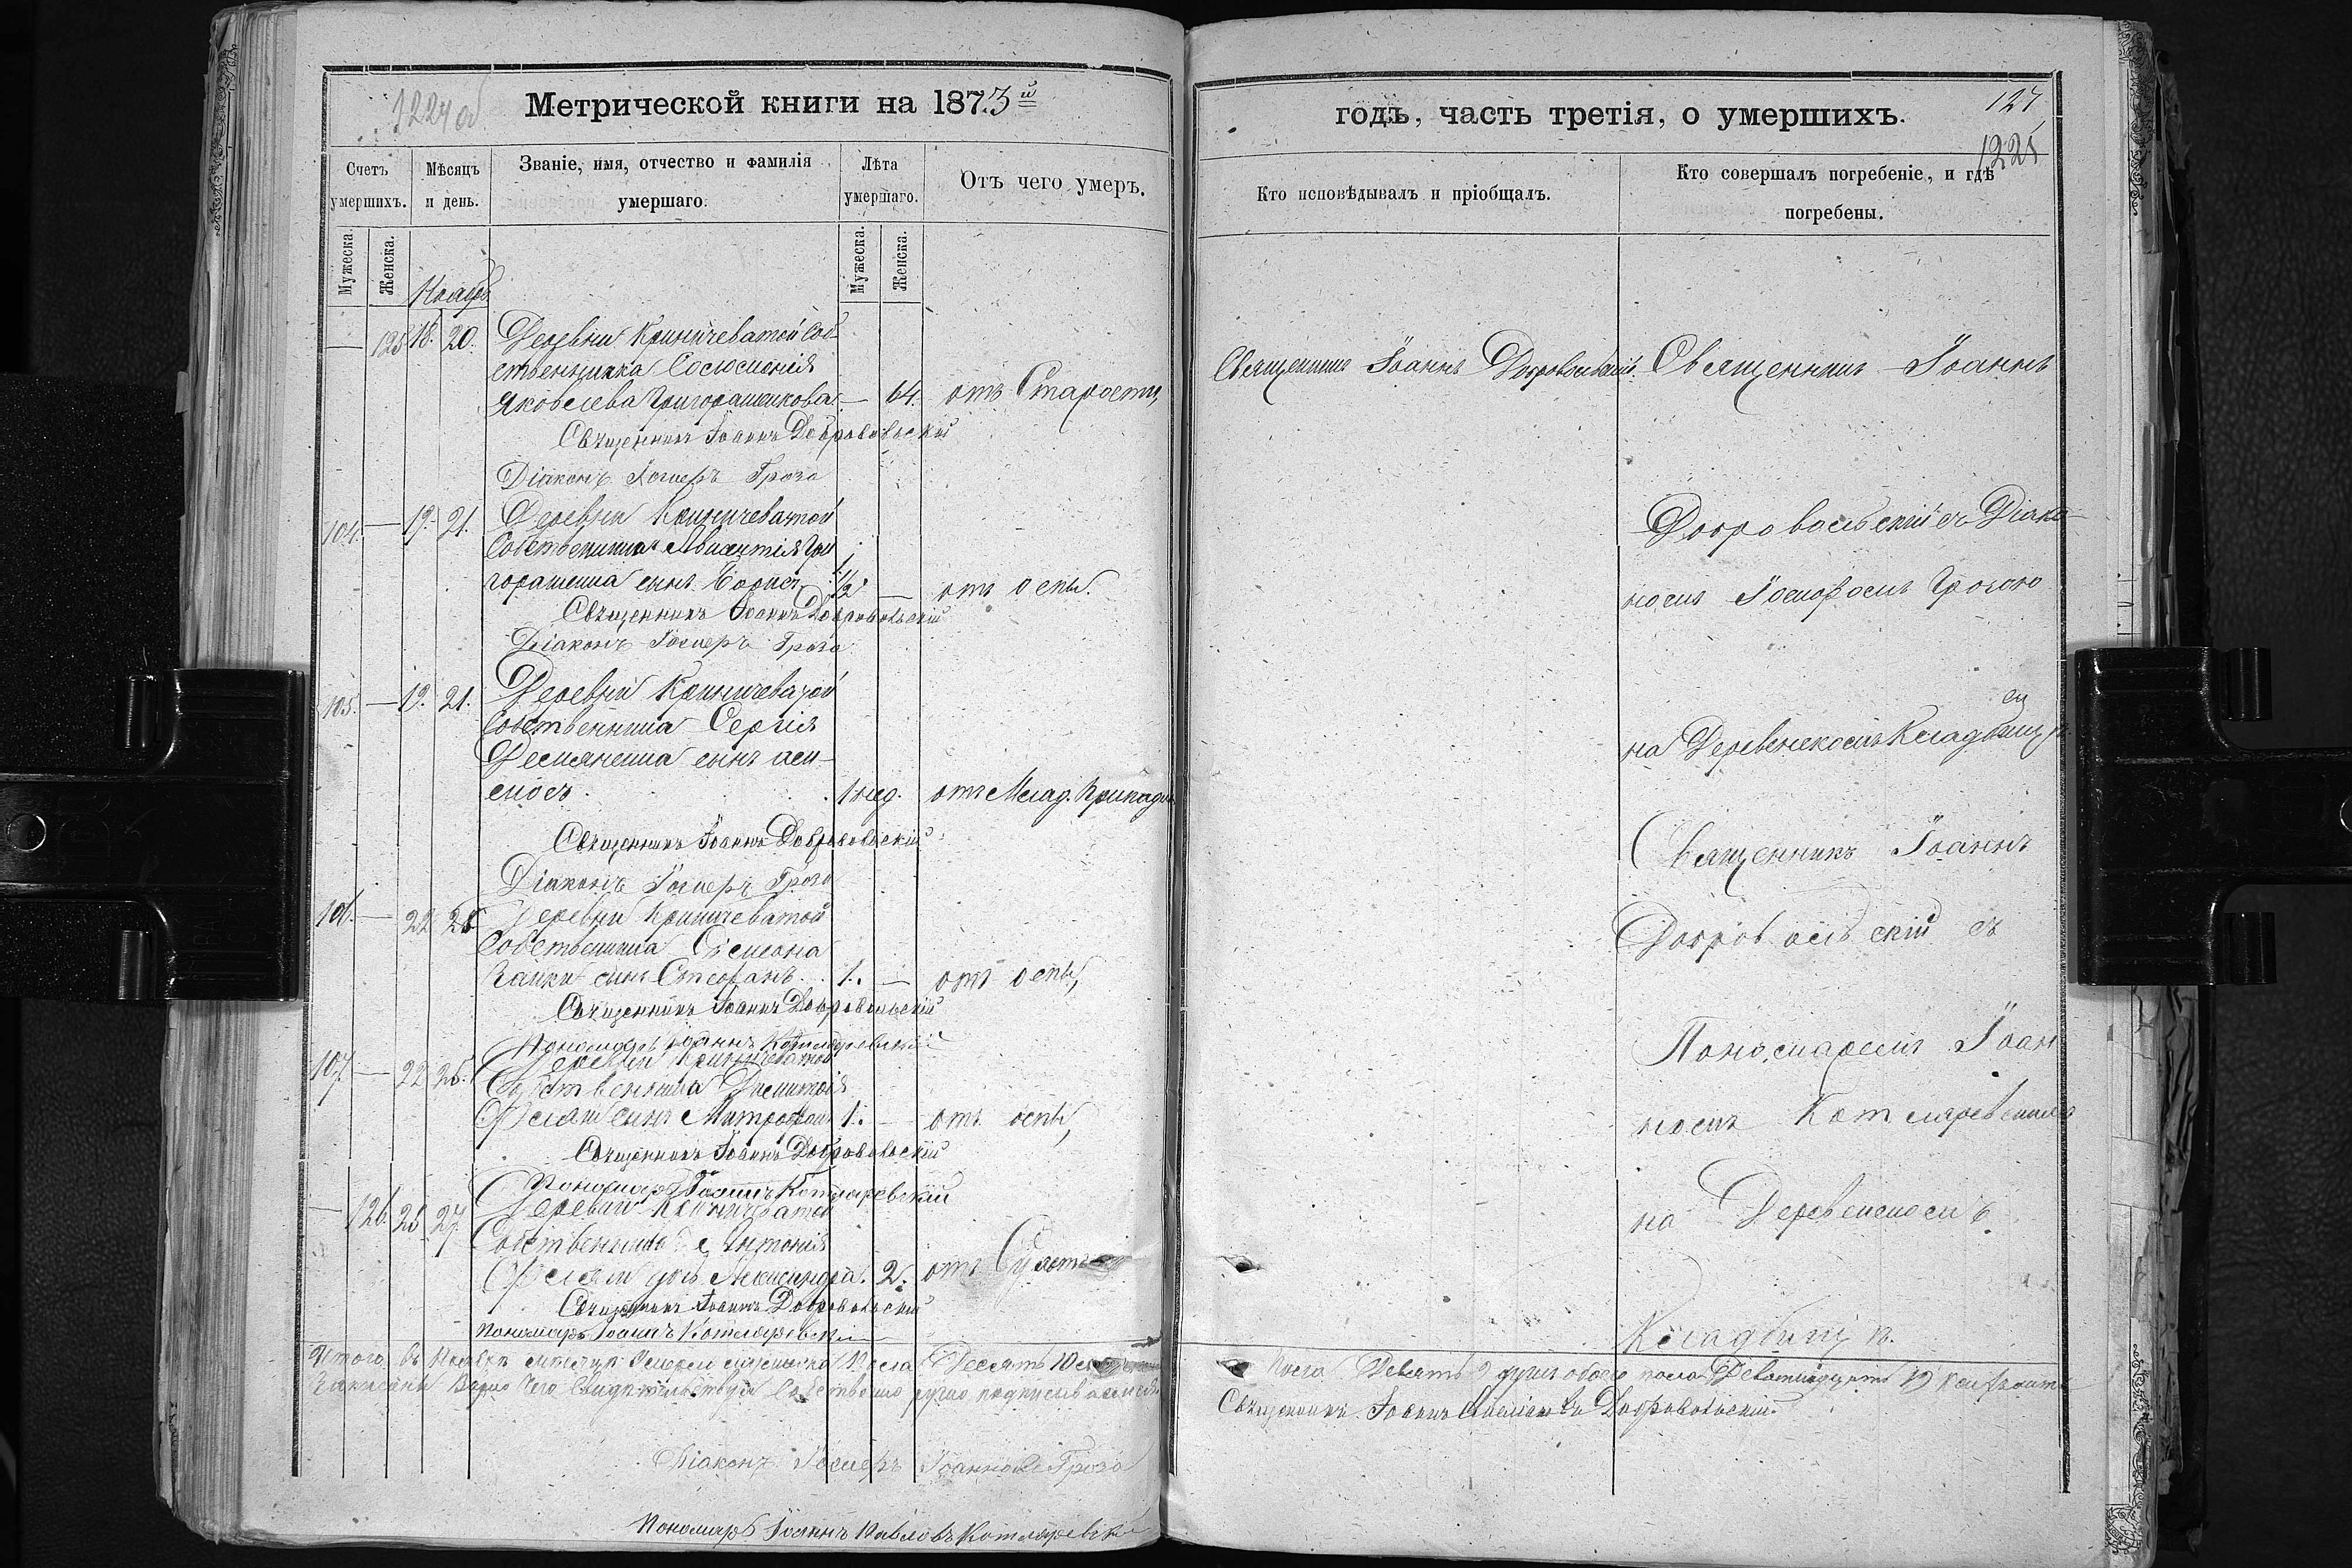 1224об
Метрической книги на 1873й
Счетъ умершихъ.
Мѣсяцъ и день.
Званіе, имя, отчество и фамилія умершаго.
Лѣта умершаго.
Отъ чего умеръ.
Мужеска.
Женска.
Мужеска.
Женска.
Ноябрь
— 125 18. 20. Деревни Криничеватой Соб-
ственника
Яковлева Григорашенкова — 64. отъ Старости,
Священникъ Іоаннъ Добровольскій
Діаконъ Іосифъ Гроза
104. — 19. 21. Деревни Криничеватой
Собственника Гри
горашенка сынъ Борисъ 1/2 — отъ оспы.
Священникъ Іоаннъ Добровольскій
Діаконъ Іосифъ Гроза
105. — 19. 21. Деревни Криничеватой
Собственника Сергія
Демяненка сынъ
1 нед. отъ Млад. Припадк.
Священникъ Іоаннъ Добровольскій
Діаконъ Іосифъ Гроза
106. — 22 25 Деревни Криничеватой
Собственника Симеона
сынъ Стефанъ. 1. — отъ оспы,
Священникъ Іоаннъ Добровольскій
Пономарь Іоаннъ Котляревскій
107. — 22 25. Деревни Криничеватой
Собственника Димитрія
сынъ Митрофанъ 1. — отъ оспы,
Священникъ Іоаннъ Добровольскій
Пономарь Іоаннъ Котляревскій
— 126. 25 27. Деревни Криничеватой
Собственника Антонія
дочь Александра. 2. отъ
Священникъ Іоаннъ Добровольскій
Пономарь Іоаннъ Котляревскій
Итого въ Ноябрѣ мѣсяцѣ умерло мужеска пола Десять 10
Записаны Вѣрно Чего Свидѣтельствуя Собственно ручно подписываемся
Діаконъ Іосифъ Іоанновъ Гроза
Пономарь Іоаннъ Павловъ Котляревскій
годъ, часть третія, о умершихъ.
127
1225
Кто исповѣдывалъ и пріобщалъ.
Кто совершалъ погребеніе, и гдѣ погребены.
Священникъ Іоаннъ Добровольскій. Священникъ Іоаннъ
Добровольскій съ Діако
номъ Іосифомъ Грозою
на Деревенскомъ Кладбищѣ.
Священникъ Іоаннъ
Добровольскій съ
Пономаремъ Іоан
номъ Котляревскимъ
на Деревенскомъ
Кладбищѣ.
пола Девять 9 душъ обоего пола Девятнадцать 19
Священникъ Іоаннъ Добровольскій.